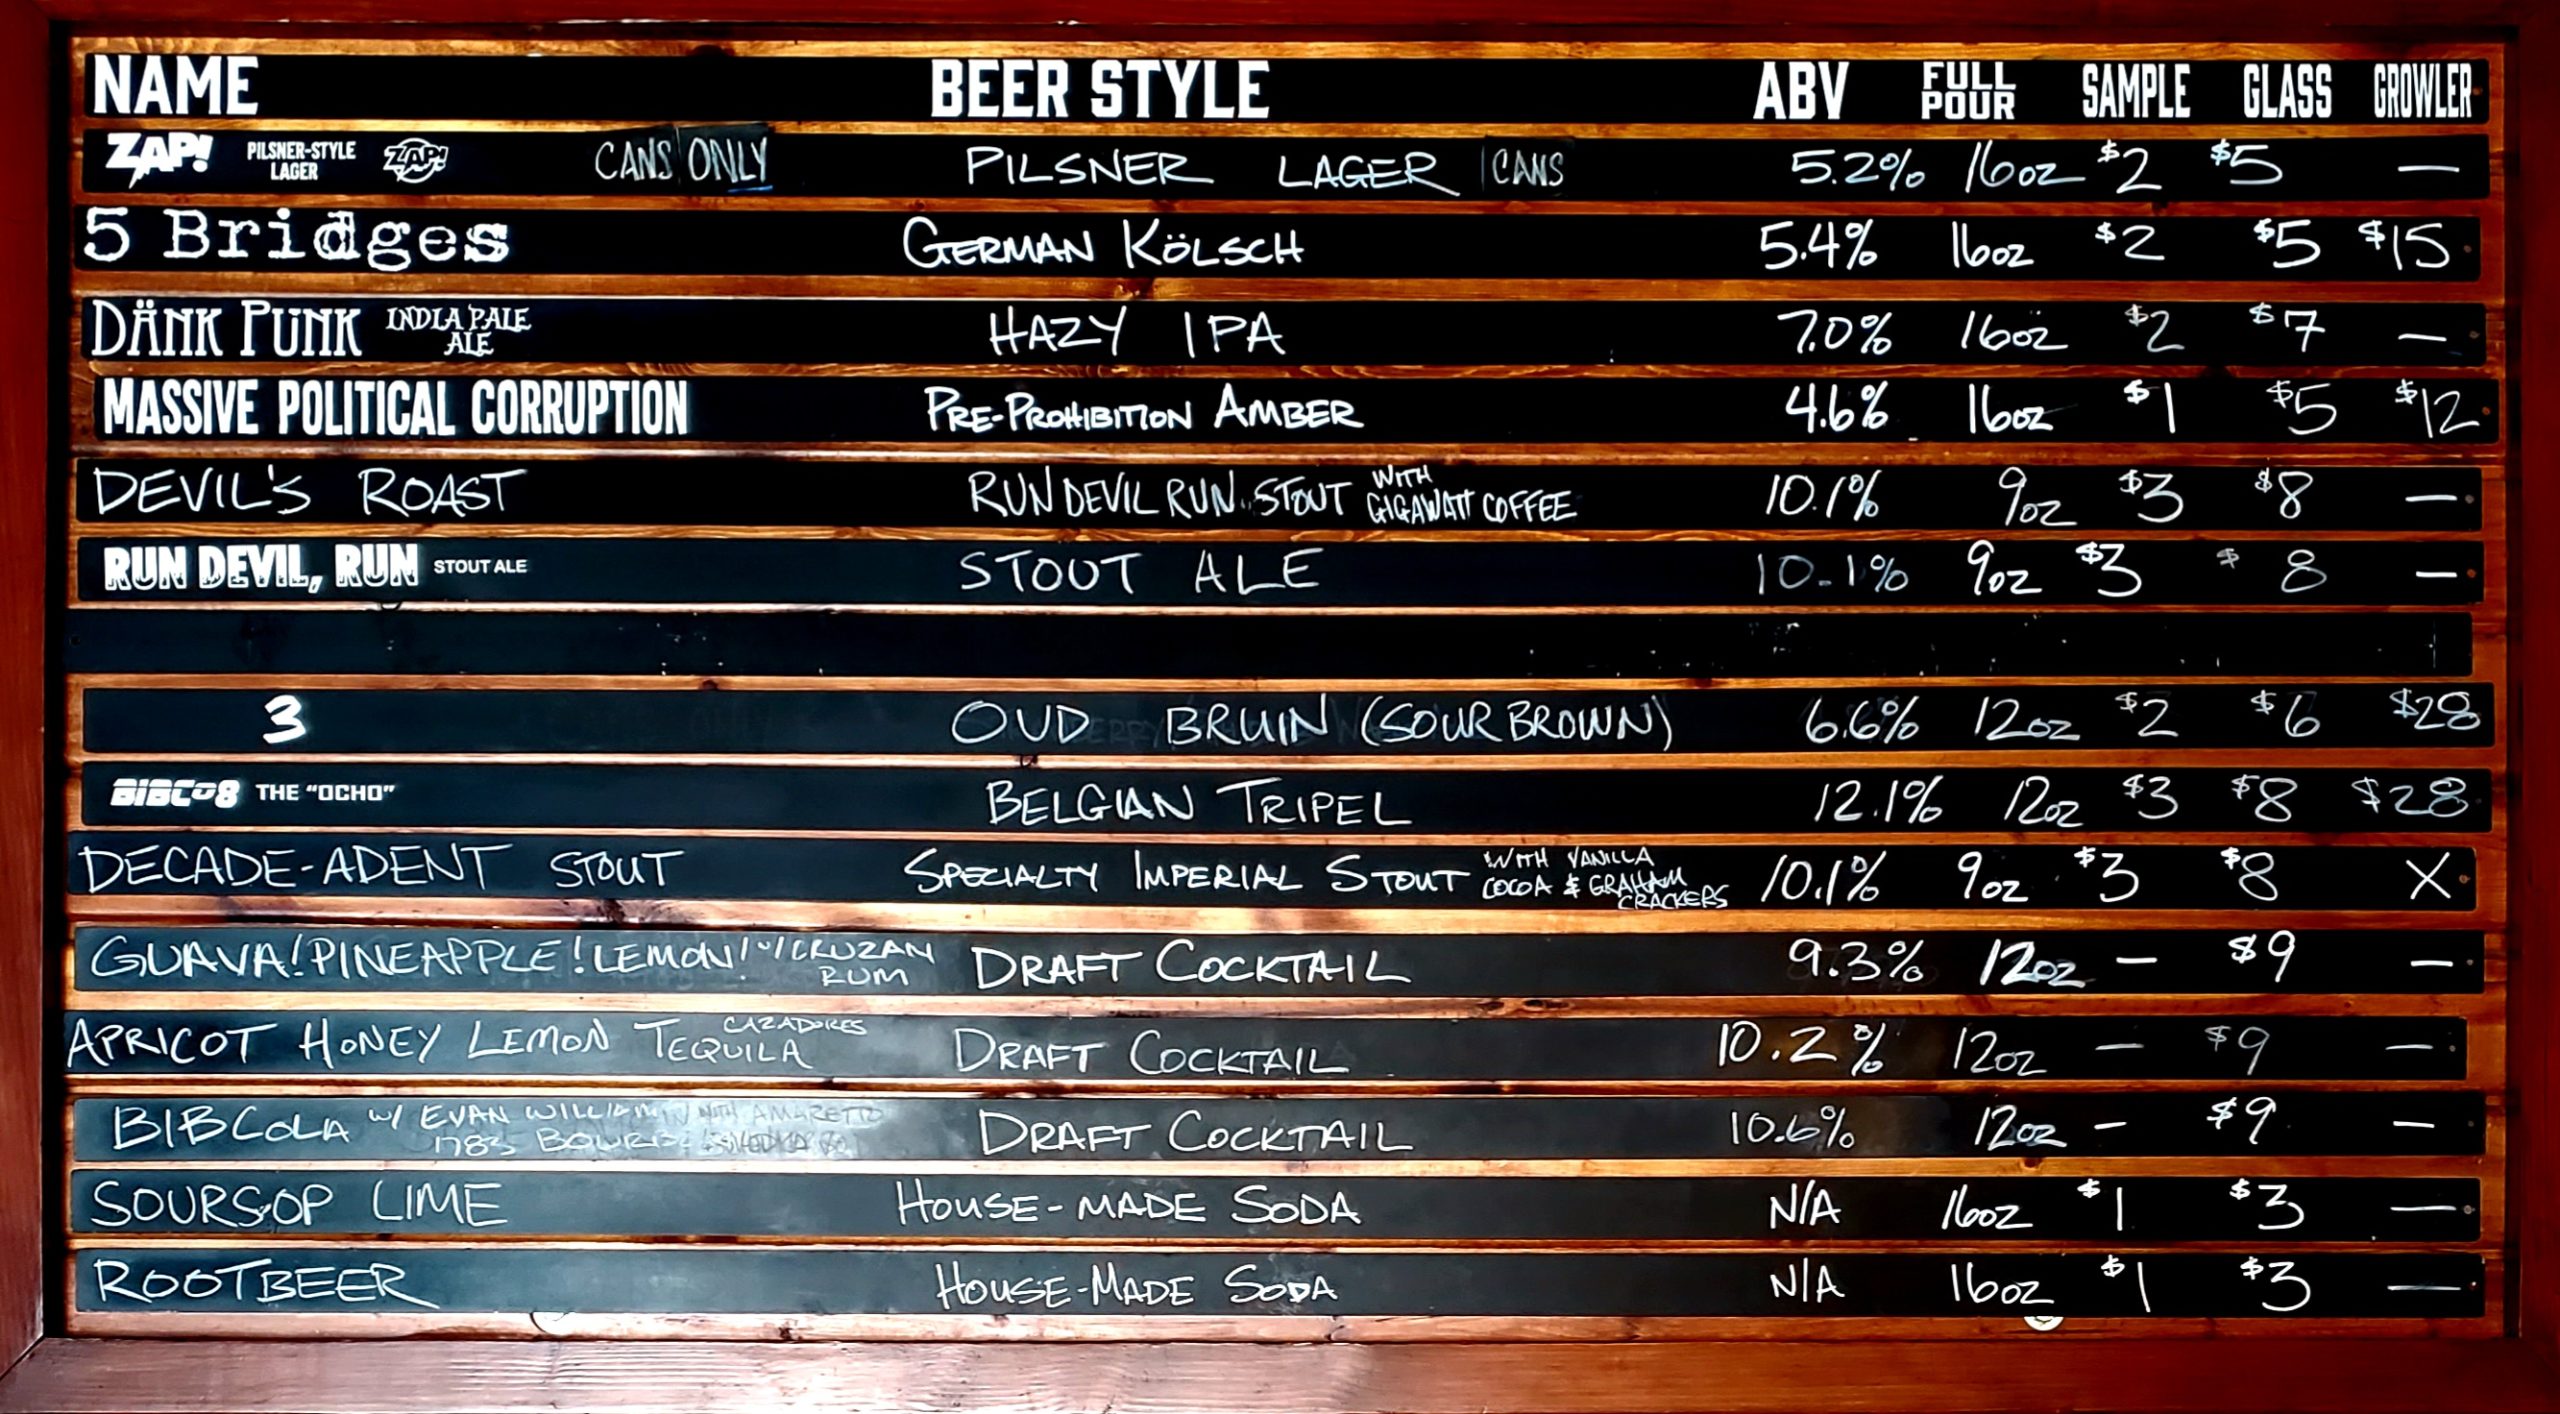 NAME BEER STYLE ABV FULL POUR SAMPLE GLASS GROWLER
ZAP! PILSNER-STYLE LAGER ZAP! CANS ONLY PILSNER LAGER CANS 5.2% 16oz $2 $5 —
5 Bridges GERMAN KÖLSCH 5.4% 16oz $2 $5 $15
DÄNK PÜNK INDIA PALE ALE HAZY IPA 7.0% 16oz $2 $7 —
MASSIVE POLITICAL CORRUPTION PRE-PROHIBITION AMBER 4.6% 16oz $1 $5 $12
DEVIL'S ROAST RUN DEVIL RUN STOUT WITH GIGAWATT COFFEE 10.1% 9oz $3 $8 —
RUN DEVIL, RUN STOUT ALE STOUT ALE 10.1% 9oz $3 $8 —
3 OUD BRUIN (SOUR BROWN) 6.6% 12oz $2 $6 $28
BIBCO8 THE "OCHO" BELGIAN TRIPEL 12.1% 12oz $3 $8 $28
DECADE-ADENT STOUT SPECIALTY IMPERIAL STOUT WITH VANILLA COCOA & GRAHAM CRACKERS 10.1% 9oz $3 $8 X
GUAVA! PINEAPPLE! LEMON! W/ CRUZAN RUM DRAFT COCKTAIL 9.3% 12oz — $9 —
APRICOT HONEY LEMON CAZADORES TEQUILA DRAFT COCKTAIL 10.2% 12oz — $9 —
BIBCOLA W/ EVAN WILLIAMS 1783 DRAFT COCKTAIL 10.6% 12oz — $9 —
SOURSOP LIME HOUSE-MADE SODA N/A 16oz $1 $3 —
ROOTBEER HOUSE-MADE SODA N/A 16oz $1 $3 —